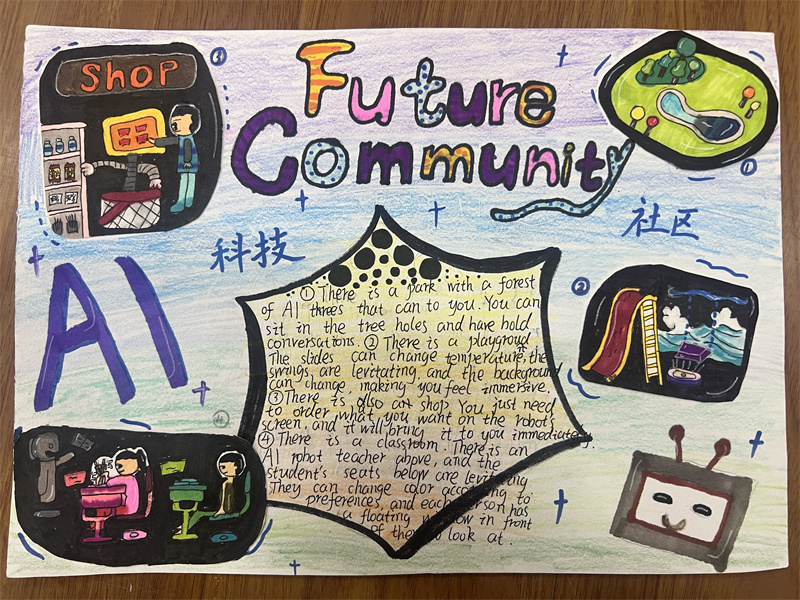 Future
Community
SHOP
③
①
科技
社区
AI
②
④
① There is a park with a forest
of AI threes that can to you. You can
sit in the tree holes and have hold
conversations. ② There is a playgroud
The slides can change temperature, the
swings are levitating, and the background
can change, making you feel immersive.
③ There is also art shop. You just need
to order what you want on the robot's
screen, and it will bring it to you immediately.
④ There is a classroom. There is an
AI robot teacher above, and the
student's seats below are levitating
They can change color according to
preferences, and each person has
a floating window in front
of them to look at.